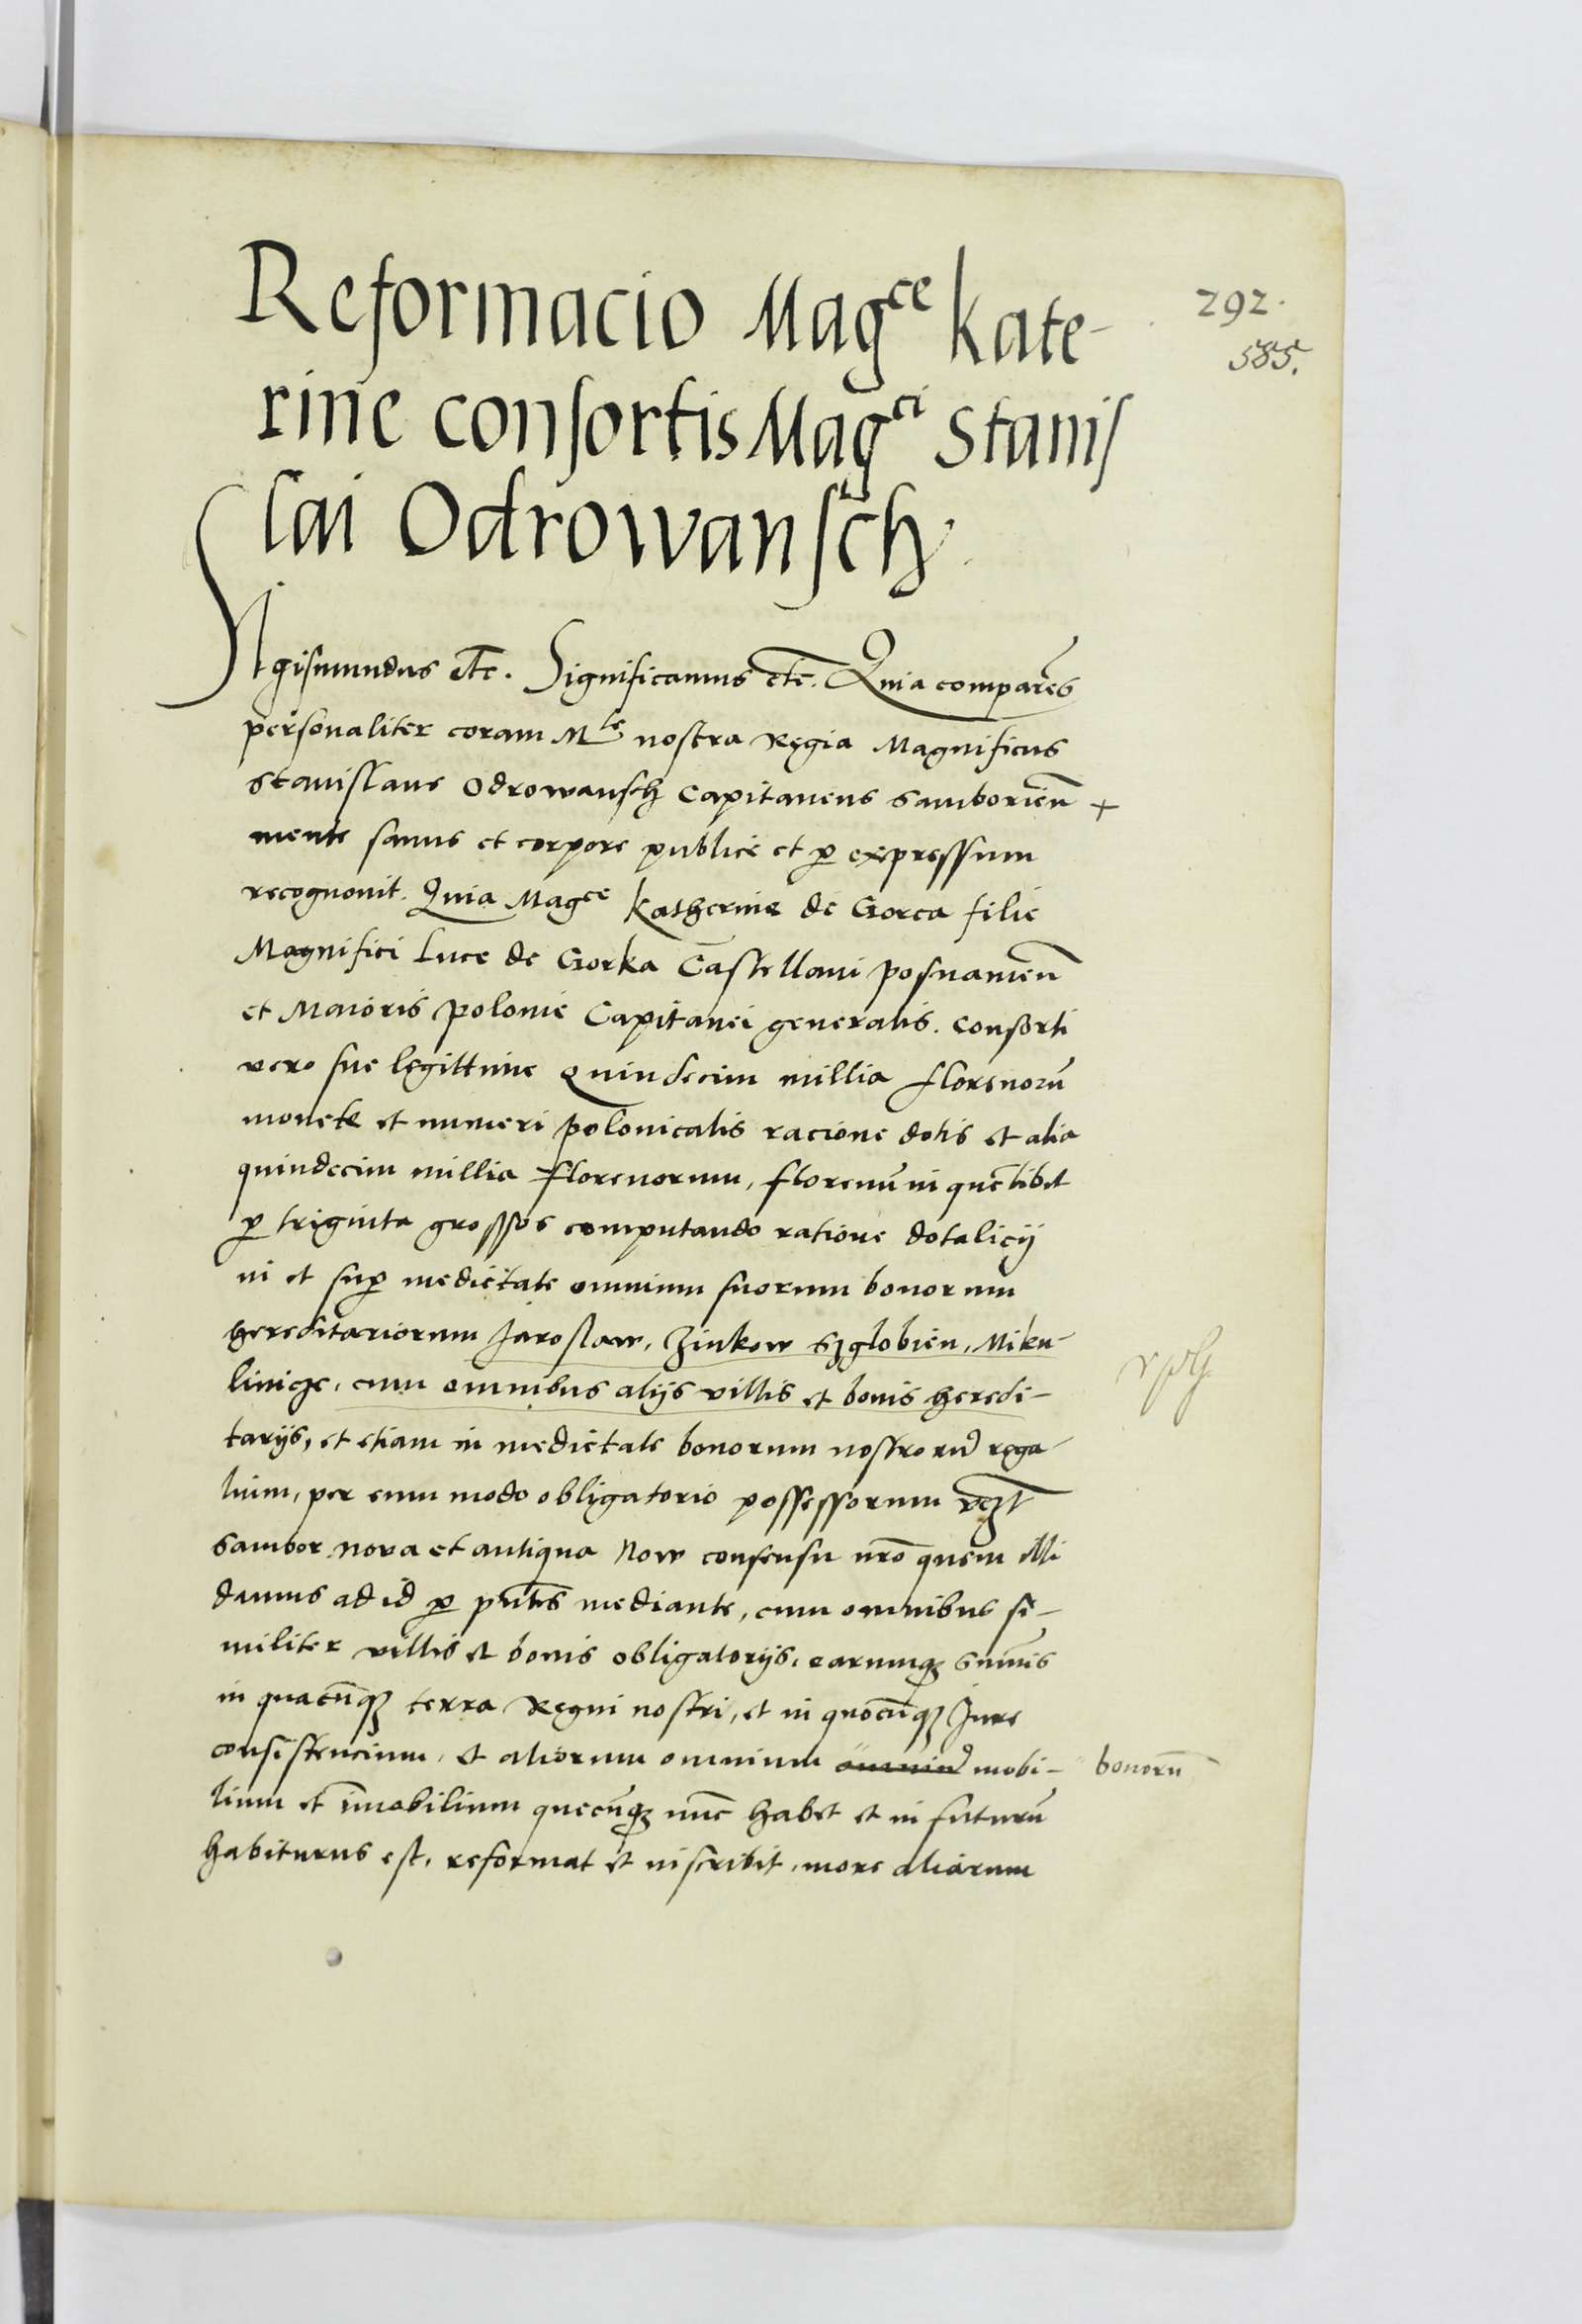 Reformacio Mag^ce Kate-
292.
585.
rine consortis Mag^ci Stanis
lai Odrowansch.
Sigismundus etc. Significamus etc. Quia comparens
personaliter coram M^te nostra Regia Magnificus
Stanislaus Odrowansch Capitaneus Samborien̄ +
mente sanus et corpore publice et ꝑ expressum
recognovit. Quia Mag^ce Katherine de Gorca filie
Magnifici Luce de Gorka Castellani posnanien̄
et Maioris polonie Capitanei generalis. Consorti
vero sue legittime Quindecim millia florenorū
monete et numeri polonicalis racione dotis et alia
quindecim millia florenorum, florenū in quēlibet
ꝑ triginta grossos computando ratione dotalicij
in et suꝑ medietate omnium suorum bonorum
hereditariorum Jaroslaw, Zinkow Szglobien, Miku-
linicze, cum omnibus alijs villis et bonis heredi-
tarijs, et etiam in medietate bonorum nostrorū rega-
lium, per eum modo obligatorio possessorum vcz̄t
Sambor nova et antiqua Now consensu nr̄o quem illi
damus ad id ꝑ pn̄tes mediante, cum omnibus si-
militer villis et bonis obligatorijs, earumqꝫ sum̄is
in quacūqꝫ terra Regni nostri, et in quocūqꝫ Jure
consistencium, et aliorum omnium omniū mobi- bonorū
lium et īmobilium quecūqꝫ nūc habet et in futurū
habiturus est, reformat et inscribit, more aliarum